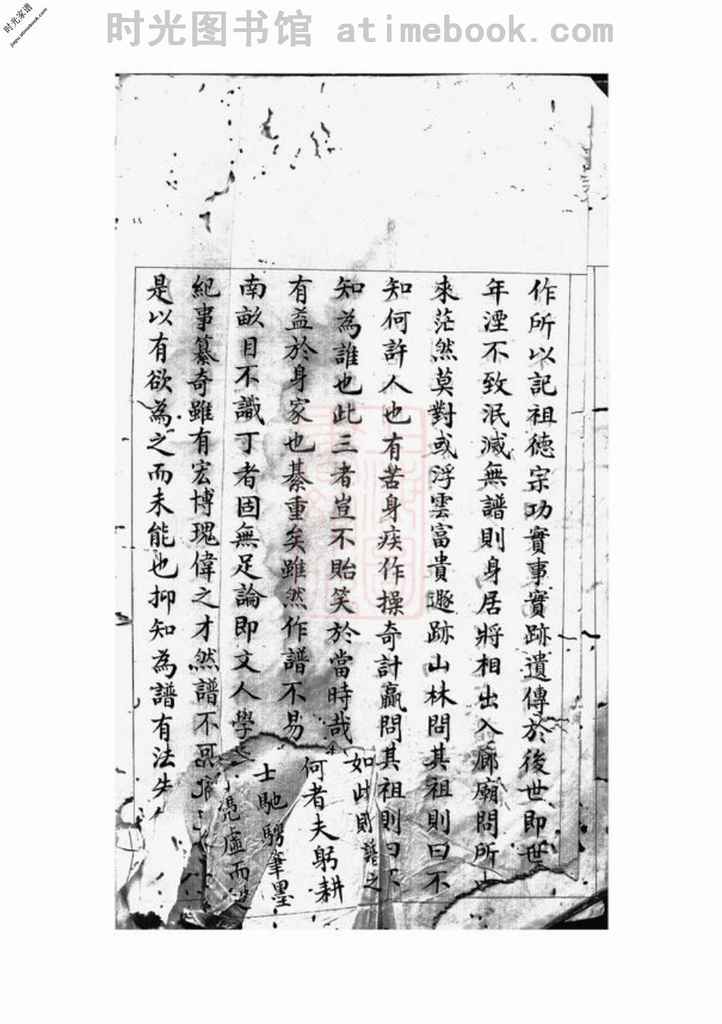 时光图书馆 atimebook.com
时光家谱
作所以記祖德宗功實事實跡遺傳於後世即世
年湮不致泯滅無譜則身居將相出入廊廟問所
來茫然莫對或浮雲富貴遯跡山林問其祖則曰不
知何許人也有苦身疾作操奇計贏問其祖則曰不
知為誰也此三者豈不貽笑於當時哉如此則譜之
有益於身家也綦重矣雖然作譜不易何者夫躬耕
南畝目不識丁者固無足論即文人學士馳騁筆墨
紀事纂奇雖有宏博瑰偉之才然譜不憑虛而
是以有欲為之而未能也抑知為譜有法